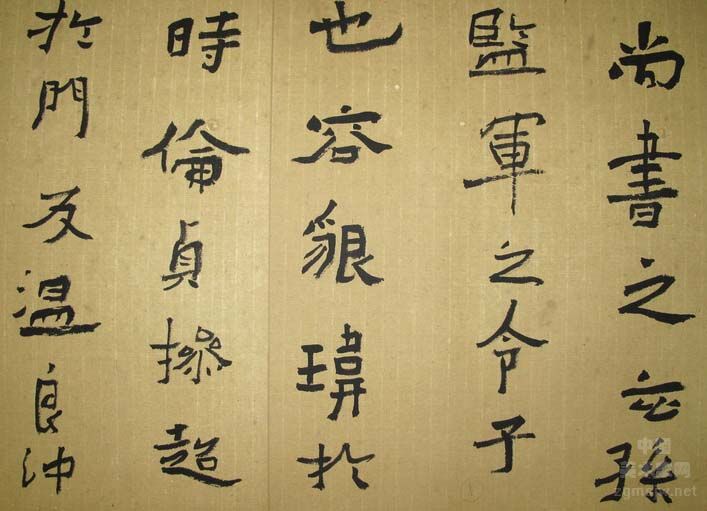 尚書之玄孫
監軍之令子
也容貌瑋於
時倫貞操超
於門友温良沖